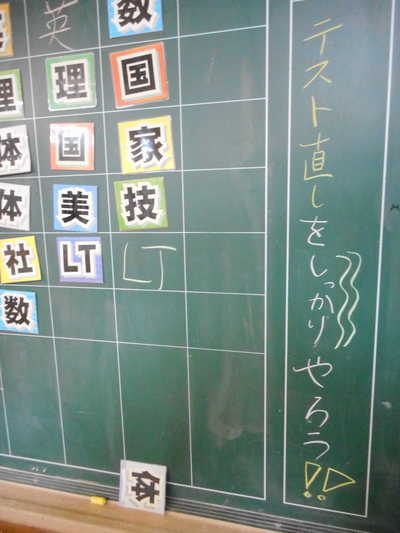 テスト直しをしっかりやろう!!
英 数
理 理 国
体 国 家
体 美 技
社 LT LT
数